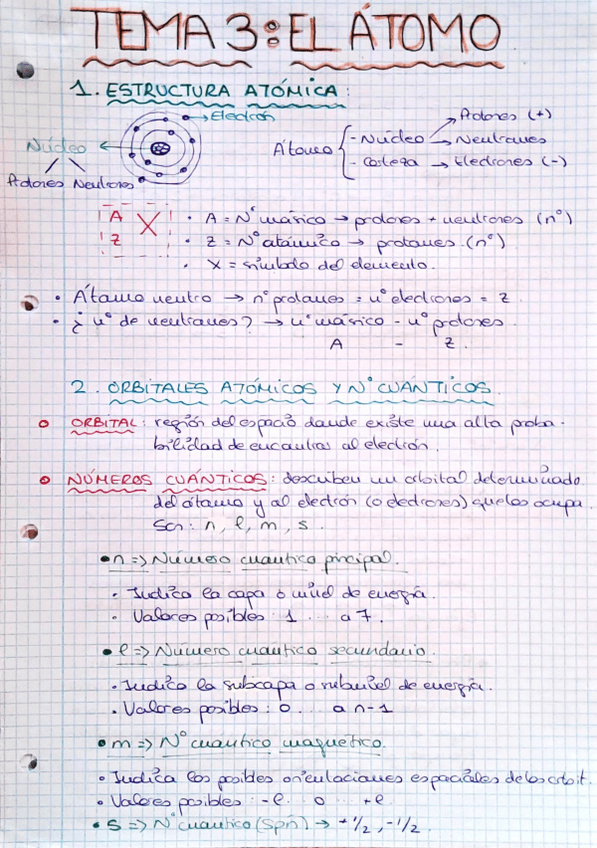 TEMA 3: EL ÁTOMO
1. ESTRUCTURA ATÓMICA:
Electrón
Núcleo
Protones Neutrones
Átomo
- Núcleo → Protones (+)
→ Neutrones
- Corteza → Electrones (-)
A
Z
X
• A = Nº másico → protones + neutrones (nº)
• Z = Nº atómico → protones (nº)
• X = símbolo del elemento.
• Átomo neutro → nº protones = nº electrones = Z
• ¿nº de neutrones? → nº másico - nº protones.
A - Z.
2. ORBITALES ATÓMICOS Y Nº CUÁNTICOS.
ORBITAL: región del espacio donde existe una alta proba-
bilidad de encontrar al electrón.
NÚMEROS CUÁNTICOS: describen un orbital determinado
del átomo y al electrón (o electrones) que los ocupa.
Son: n, l, m, s.
• n => Número cuantico pincipal.
• Indica la capa o nivel de energía.
• Valores posibles: 1 ... a 7.
• l => Número cuantico secundario.
• Indica la subcapa o subnivel de energía.
• Valores posibles: 0 ... a n-1
• m => Nº cuantico magnetico.
• Indica las posibles orientaciones espaciales de los orbit.
• Valores posibles: -l .. 0 .. +l.
• s => Nº cuantico (Spin) → +1/2, -1/2.